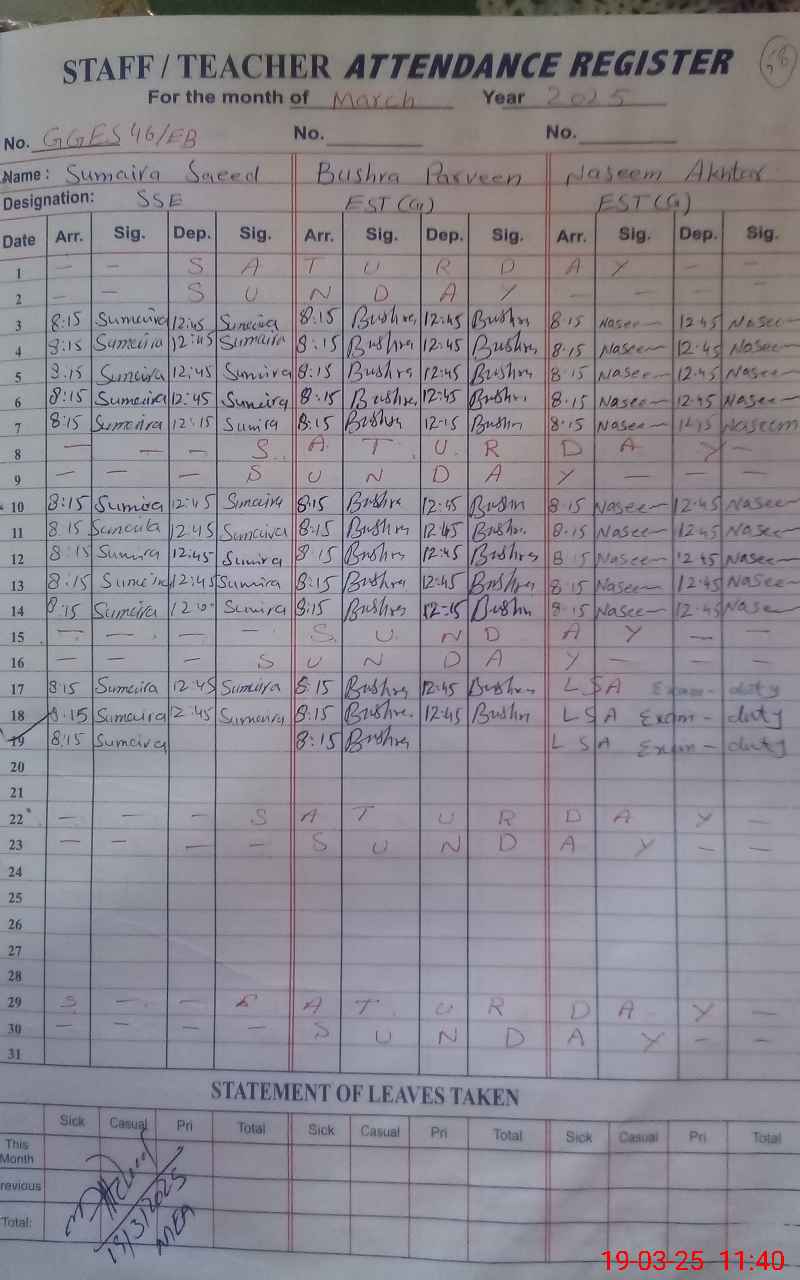 STAFF / TEACHER ATTENDANCE REGISTER 38
For the month of March Year 2025
No. GGES 46/EB No. No.
Name : Sumaira Saeed Bushra Parveen Naseem Akhtar
Designation: SSE EST (G) EST (G)
Date Arr. Sig. Dep. Sig. Arr. Sig. Dep. Sig. Arr. Sig. Dep. Sig.
1 - - S A T U R D A Y - -
2 - - S U N D A Y - - - -
3 8:15 Sumaira 12:45 Sumaira 8:15 Bushra 12:45 Bushra 8:15 Naseem 12:45 Naseem
4 8:15 Sumaira 12:45 Sumaira 8:15 Bushra 12:45 Bushra 8:15 Naseem 12:45 Naseem
5 8:15 Sumaira 12:45 Sumaira 8:15 Bushra 12:45 Bushra 8:15 Naseem 12:45 Naseem
6 8:15 Sumaira 12:45 Sumaira 8:15 Bushra 12:45 Bushra 8:15 Naseem 12:45 Naseem
7 8:15 Sumaira 12:15 Sumira 8:15 Bushra 12:15 Bushra 8:15 Naseem 12:15 Naseem
8 - - - S A T U R D A Y -
9 - - - S U N D A Y - - -
10 8:15 Sumira 12:45 Sumaira 8:15 Bushra 12:45 Bushra 8:15 Naseem 12:45 Naseem
11 8:15 Sumaira 12:45 Sumaira 8:15 Bushra 12:45 Bushra 8:15 Naseem 12:45 Naseem
12 8:15 Sumira 12:45 Sumira 8:15 Bushra 12:45 Bushra 8:15 Naseem 12:45 Naseem
13 8:15 Sumaira 12:45 Sumira 8:15 Bushra 12:45 Bushra 8:15 Naseem 12:45 Naseem
14 8:15 Sumaira Sumira 8:15 Bushra 12:15 Bushra 8:15 Naseem 12:45 Naseem
15 - - - - S U N D A Y - -
16 - - - S U N D A Y - - -
17 8:15 Sumaira 12:45 Sumaira 8:15 Bushra 12:45 Bushra L S A Exam - duty
18 8:15 Sumaira 12:45 Sumaira 8:15 Bushra 12:45 Bushra L S A Exam - duty
19 8:15 Sumaira 8:15 Bushra L S A Exam - duty
20
21
22 - - - S A T U R D A Y -
23 - - - - S U N D A Y - -
24
25
26
27
28
29 S - - A T U R D A Y -
30 - - - - S U N D A Y - -
31
STATEMENT OF LEAVES TAKEN
Sick Casual Pri Total Sick Casual Pri Total Sick Casual Pri Total
This Month
revious
Total:
19/3/2025
MEA
19-03-25 11:40